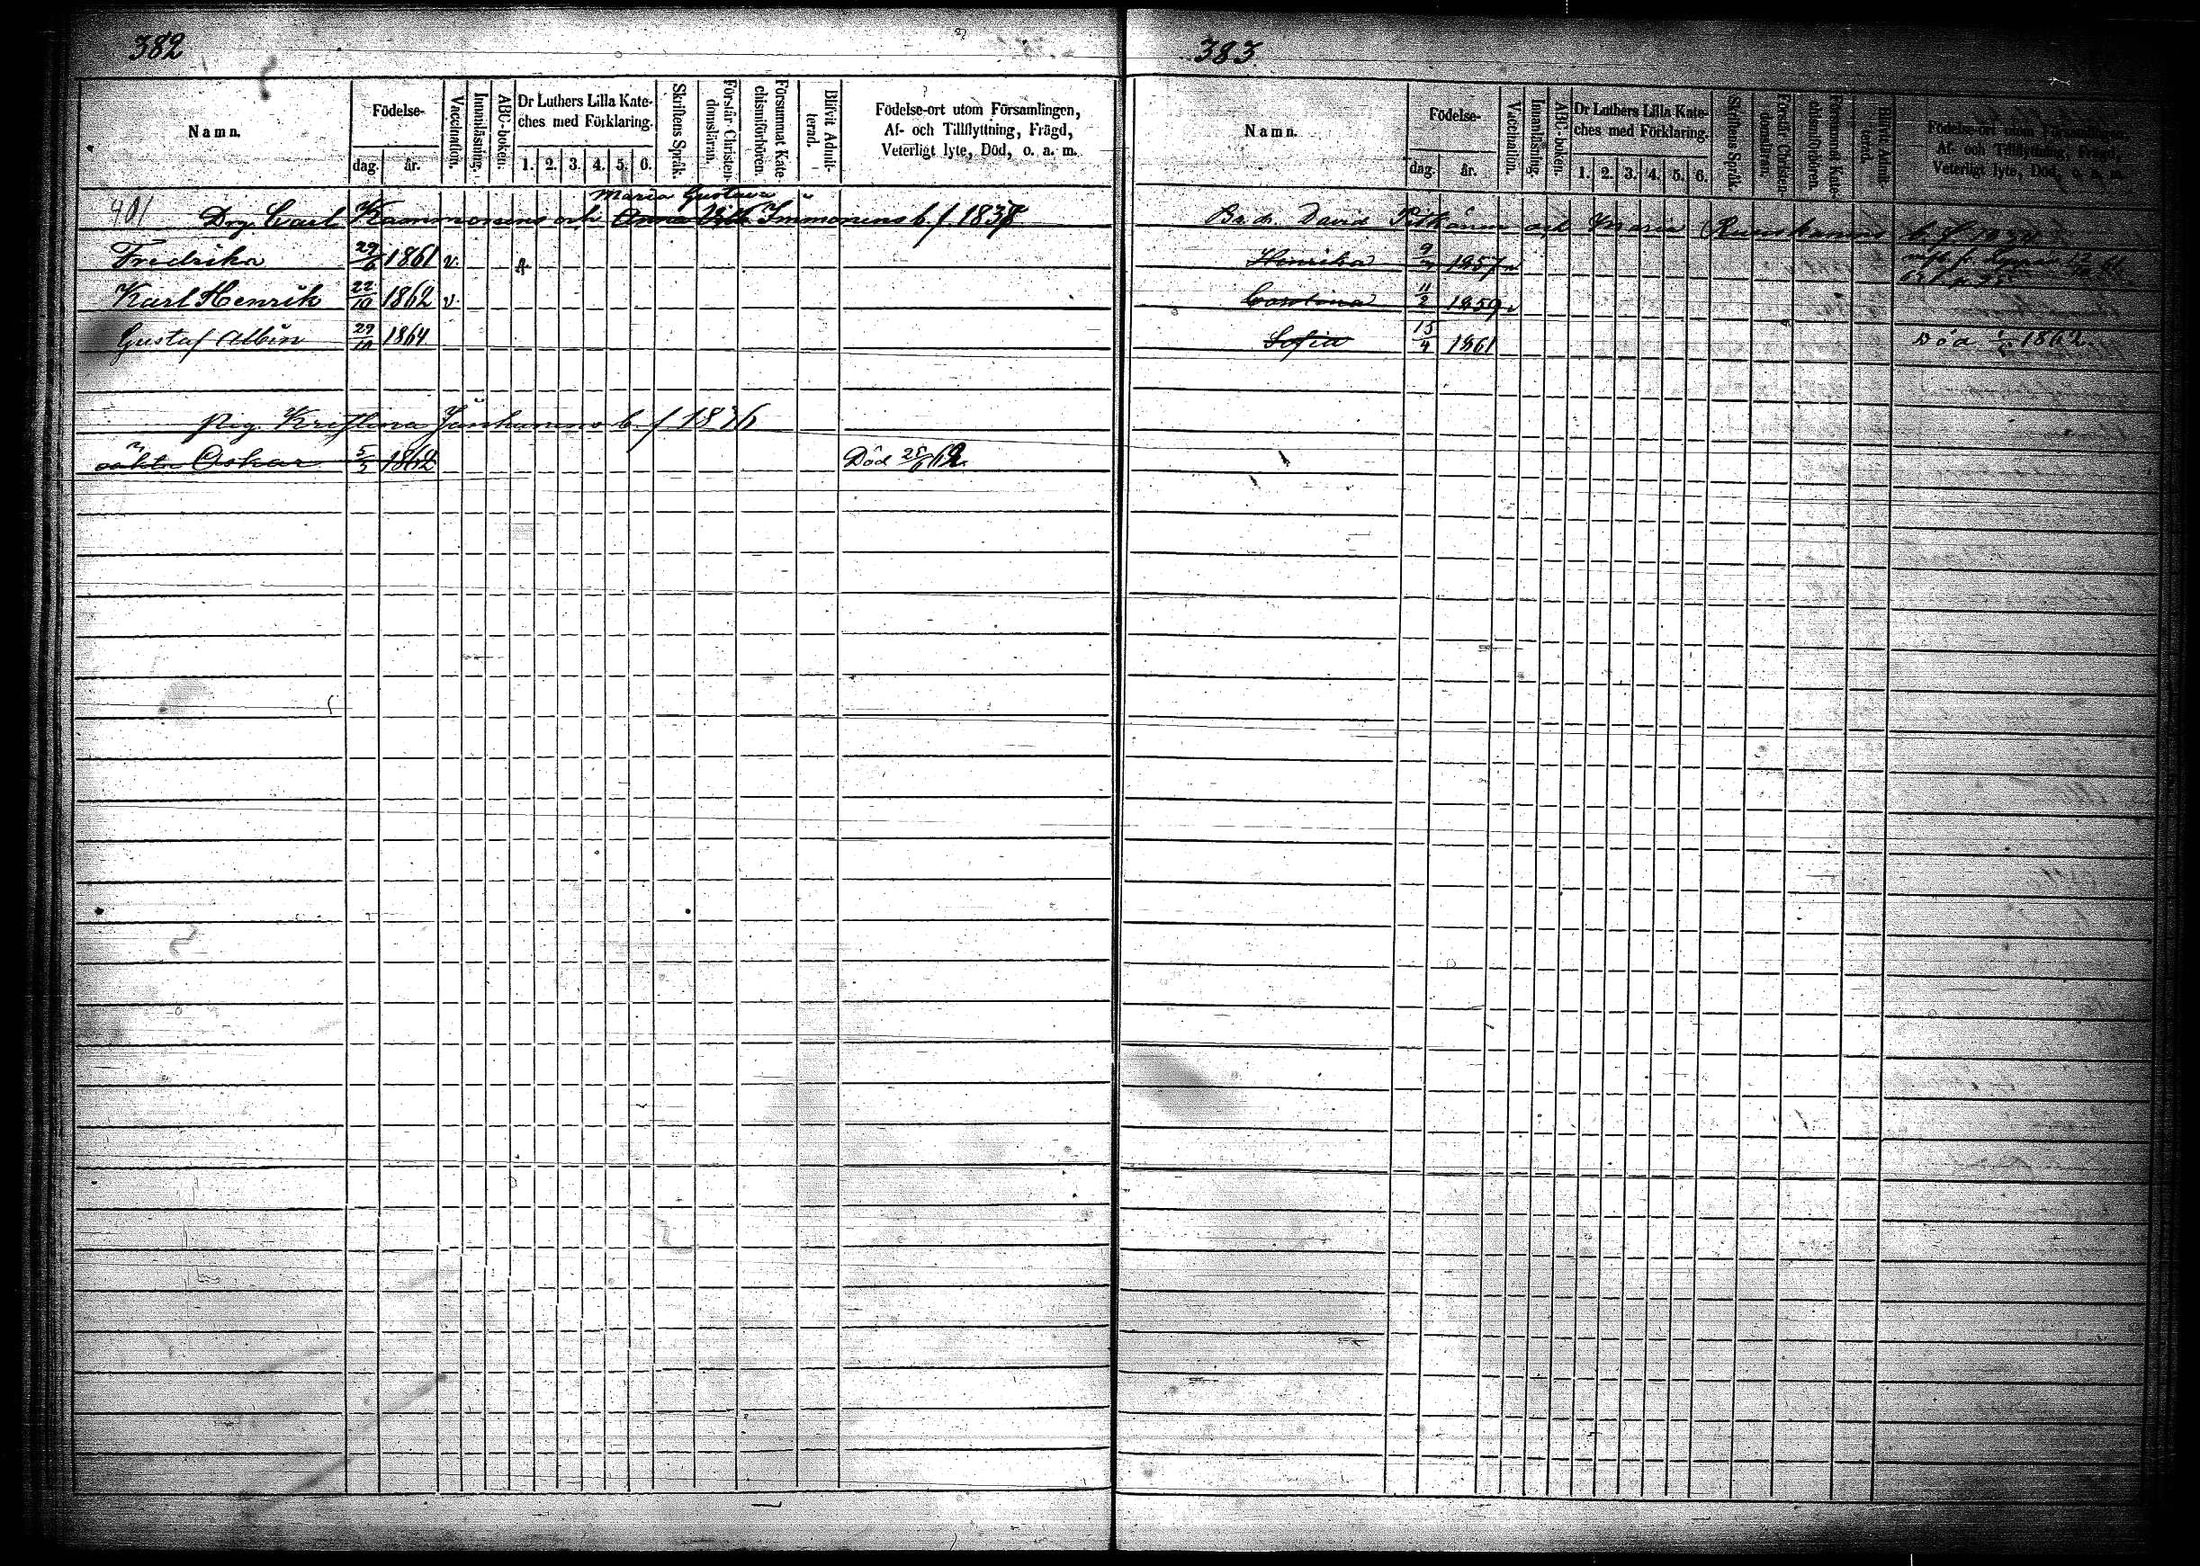 382
Namn.
Födelse-
dag.
år.
Vaccination.
Innanläsning.
ABC-boken.
Dr Luthers Lilla Kate-
ches med Förklaring.
1. 2. 3. 4. 5. 6.
Skriftens Språk.
Förstår Christen-
domsläran.
Försummat Kate-
chismiförhören.
Blifvit Admit-
terad.
Födelse-ort utom Församlingen,
Af- och Tillflyttning, Frägd,
Veterligt lyte, Död, o. a. m.
401
Maria Gustava
Drg. Carl Kammonens och Anna Immonens b. f. 1838
Fredrika 29/6 1861 v.
Karl Henrik 22/10 1862 v.
Gustaf Albin 29/10 1864
Pig. b. f 1836
oäkta Oskar 5/5 1862 Död 25/6 62
383
Namn.
Födelse-
dag.
år.
Vaccination.
Innanläsning.
ABC-boken.
Dr Luthers Lilla Kate-
ches med Förklaring.
1. 2. 3. 4. 5. 6.
Skriftens Språk.
Förstår Christen-
domsläran.
Försummat Kate-
chismiförhören.
Blifvit Admit-
terad.
Födelse-ort utom Församlingen,
Af- och Tillflyttning, Frägd,
Veterligt lyte, Död, o. a. m.
David och Maria b. f.
Henrika 1857 v
Carolina 11/2 1859 v
Sofia 15/4 1861 Död 1862